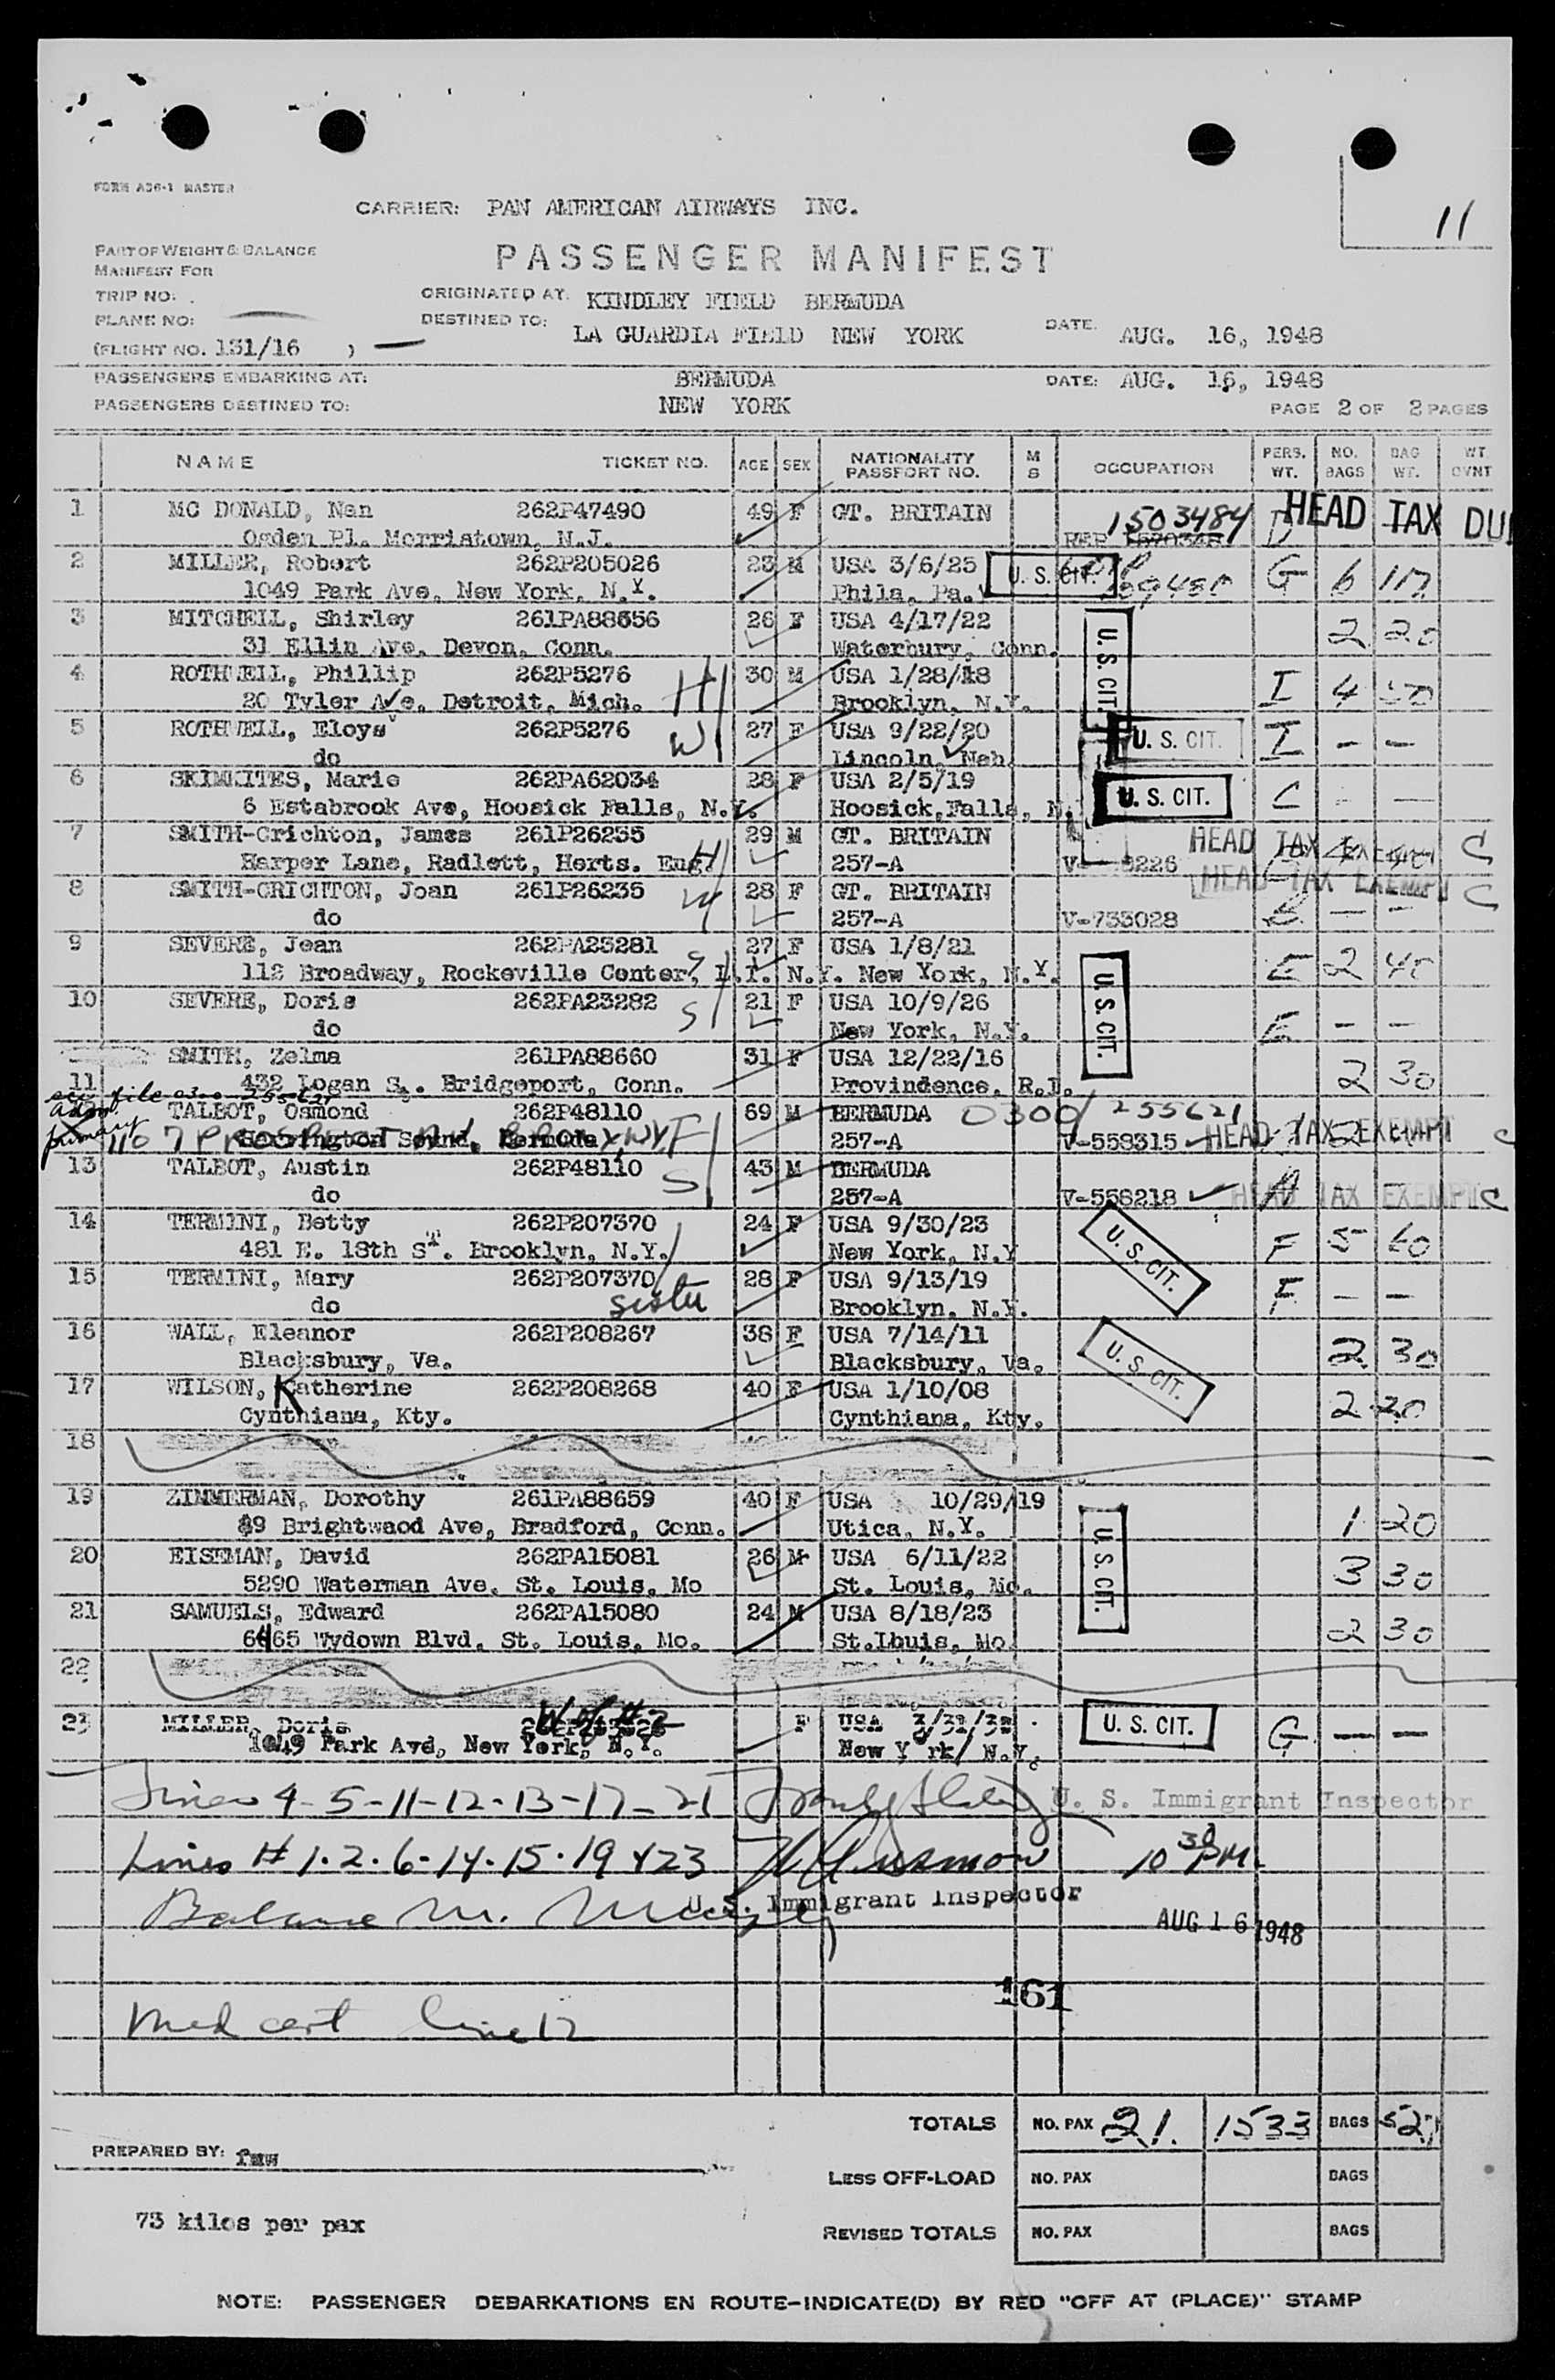 11
FORM A36-1 MASTER
CARRIER: PAN AMERICAN AIRWAYS INC.
PART OF WEIGHT & BALANCE
MANIFEST FOR
PASSENGER MANIFEST
TRIP NO:
ORIGINATED AT: KINDLEY FIELD BERMUDA
PLANE NO:
DESTINED TO: LA GUARDIA FIELD NEW YORK DATE: AUG. 16, 1948
(FLIGHT NO. 131/16 )
PASSENGERS EMBARKING AT: BERMUDA DATE: AUG. 16, 1948
PASSENGERS DESTINED TO: NEW YORK
PAGE 2 OF 2 PAGES
NAME TICKET NO. AGE SEX NATIONALITY PASSPORT NO. M S OCCUPATION PERS. WT. NO. BAGS BAG WT. WT. CVNT
1 MC DONALD, Nan 262P47490 49 F GT. BRITAIN 1503484 HEAD TAX DU
Ogden Pl. Morristown, N.J.
2 MILLER, Robert 262P205026 23 M USA 3/6/25 U. S. CIT. G 6
1049 Park Ave. New York, N.Y. Phila, Pa.
3 MITCHELL, Shirley 261PA88656 26 F USA 4/17/22 2 20
31 Ellin Ave. Devon, Conn. Waterbury, Conn. U. S. CIT.
4 ROTHWELL, Phillip 262P5276 H 30 M USA 1/28/18 I 4
20 Tyler Ave. Detroit, Mich. Brooklyn, N.Y.
5 ROTHWELL, Eloys 262P5276 W 27 F USA 9/22/20 U. S. CIT. I – –
do Lincoln, Neb.
6 SKIMKITES, Marie 262PA62034 28 F USA 2/5/19 U. S. CIT. C – –
6 Estabrook Ave, Hoosick Falls, N.Y. Hoosick Falls, N.
7 SMITH-Crichton, James 261P26235 H 29 M GT. BRITAIN HEAD TAX EXEMPT C
Harper Lane, Radlett, Herts. Eng. 257-A
8 SMITH-CRICHTON, Joan 261P26235 W 28 F GT. BRITAIN HEAD TAX EXEMPT C
do 257-A V-733028 – –
9 SEVERE, Jean 262PA23281 S 27 F USA 1/8/21 E 2 40
112 Broadway, Rockeville Center, L.I. N.Y. New York, N.Y. U. S. CIT.
10 SEVERE, Doris 262PA23282 S 21 F USA 10/9/26 E – –
do New York, N.Y.
11 SMITH, Zelma 261PA88660 31 F USA 12/22/16 2 30
432 Logan S. Bridgeport, Conn. Provindence, R.I.
see file 0300-255621
TALBOT, Osmond 262P48110 F 69 M BERMUDA 0300/255621
primary 1107 PROSPECT AV. BRONX, NY. Harrington Sound, Bermuda 257-A V-558315 HEAD TAX EXEMPT C
13 TALBOT, Austin 262P48110 S 43 M BERMUDA
do 257-A V-558218 A HEAD TAX EXEMPT C
14 TERMINI, Betty 262P207370 24 F USA 9/30/23 U. S. CIT. F 5 60
481 E. 18th ST. Brooklyn, N.Y. New York, N.Y
15 TERMINI, Mary 262P207370 28 F USA 9/13/19 F – –
do sister Brooklyn, N.Y.
16 WALL, Eleanor 262P208267 38 F USA 7/14/11 2 30
Blacksbury, Va. Blacksbury, Va. U. S. CIT.
17 WILSON, Katherine 262P208268 40 F USA 1/10/08 2 20
Cynthiana, Kty. Cynthiana, Kty.
18
19 ZIMMERMAN, Dorothy 261PA88659 40 F USA 10/29/19 1 20
89 Brightwaod Ave, Bradford, Conn. Utica, N.Y. U. S. CIT.
20 EISEMAN, David 262PA15081 26 M USA 6/11/22 3 30
5290 Waterman Ave. St. Louis, Mo St. Louis, Mo.
21 SAMUELS, Edward 262PA15080 24 M USA 8/18/23 2 30
6465 Wydown Blvd. St. Louis, Mo. St.Lbuis, Mo.
22
23 MILLER, Doris W of #2 F USA U. S. CIT. G – –
1049 Park Ave, New York, N.Y. New Y rk, N.Y.
Lines 4-5-11-12-13-17-21 U. S. Immigrant Inspector
Lines # 1·2·6·14·15·19 & 23 10 30 PM.
U. S. Immigrant Inspector
Balance M.
AUG 16 1948
161
Med cert line 12
TOTALS NO. PAX 21 1533 BAGS 52
PREPARED BY: fmw
LESS OFF-LOAD NO. PAX BAGS
73 kilos per pax
REVISED TOTALS NO. PAX BAGS
NOTE: PASSENGER DEBARKATIONS EN ROUTE-INDICATE(D) BY RED "OFF AT (PLACE)" STAMP